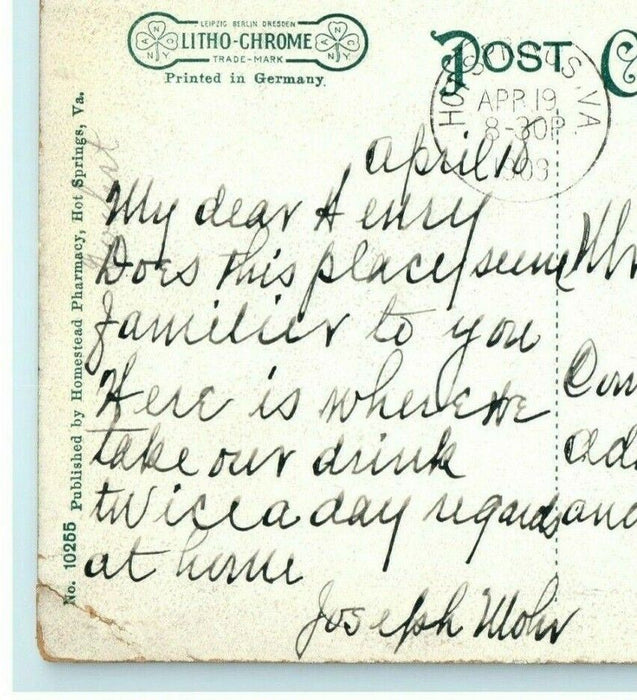 LEIPZIG BERLIN DRESDEN
LITHO-CHROME
TRADE-MARK
Printed in Germany.
POST C
HOT SPRINGS, VA
APR 19
8-30P
1909
No. 10255 Published by Homestead Pharmacy, Hot Springs, Va.
april 18
My dear Henry
Does this place seem
familier to you
Here is where we
take our drink
twice a day regards
at home
Joseph Mohr
Mr
Con
Ad
and